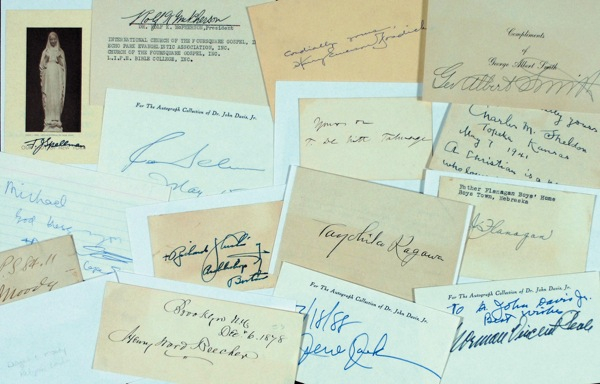 F J Spellman
Rolf K McPherson
President
INTERNATIONAL CHURCH OF THE FOURSQUARE GOSPEL,
ECHO PARK EVANGELISTIC ASSOCIATION, INC.
CHURCH OF THE FOURSQUARE GOSPEL, INC.
L.I.F.E. BIBLE COLLEGE, INC.
Cordially yours,
Harry Emerson Fosdick
Compliments
of
George Albert Smith
Geo Albert Smith
For The Autograph Collection of Dr. John Davis, Jr.
Yours
T De Witt Talmage
yours
Charles M. Sheldon
Topeka
Kansas
May 7 1941
A Christian is a
who
Michael
God bless you
Father Flanagan Boys' Home
Boys Town, Nebraska
Flanagan
+ Richard J Cushing
Archbishop of
Boston
Toyohiko Kagawa
Moody
Brooklyn N.Y.
Dec 6. 1878
Henry Ward Beecher
For The Autograph Collection of Dr. John Davis, Jr.
2/18/88
For The Autograph Collection of Dr. John Davis, Jr.
To Dr. John Davis Jr.
Best wishes
Norman Vincent Peale